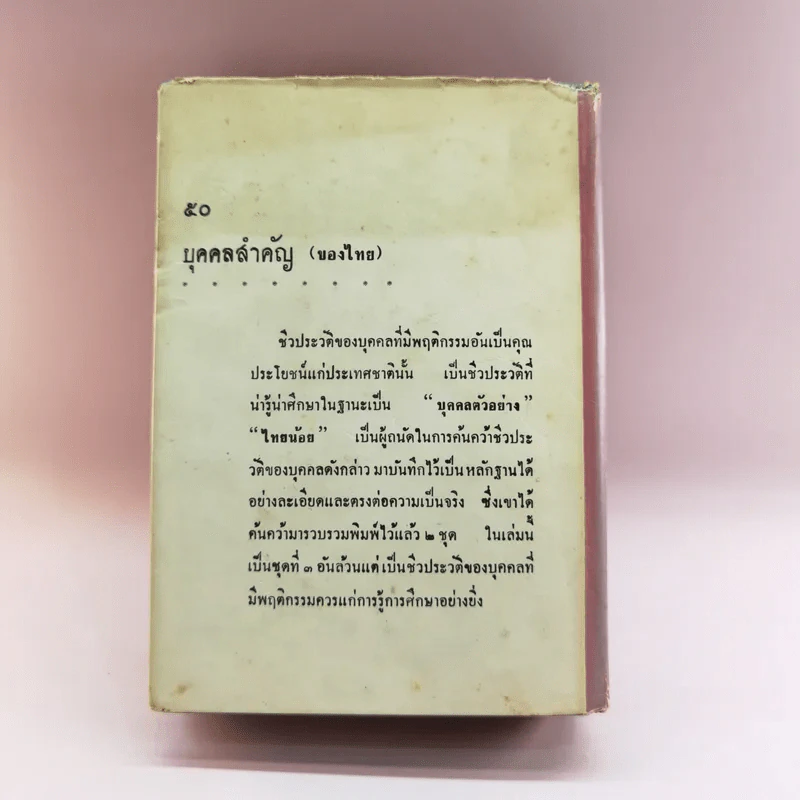 ๕๐
บุคคลสำคัญ (ของไทย)
ชีวประวัติของบุคคลที่มีพฤติกรรมอันเป็นคุณ
ประโยชน์แก่ประเทศชาตินั้น เป็นชีวประวัติที่
น่ารู้น่าศึกษาในฐานะเป็น “บุคคลตัวอย่าง”
“ไทยน้อย” เป็นผู้ถนัดในการค้นคว้าชีวประ
วัติของบุคคลดังกล่าว มาบันทึกไว้เป็นหลักฐานได้
อย่างละเอียดและตรงต่อความเป็นจริง ซึ่งเขาได้
ค้นคว้ามารวบรวมพิมพ์ไว้แล้ว ๒ ชุด ในเล่มนี้
เป็นชุดที่ ๓ อันล้วนแต่เป็นชีวประวัติของบุคคลที่
มีพฤติกรรมควรแก่การรู้การศึกษาอย่างยิ่ง